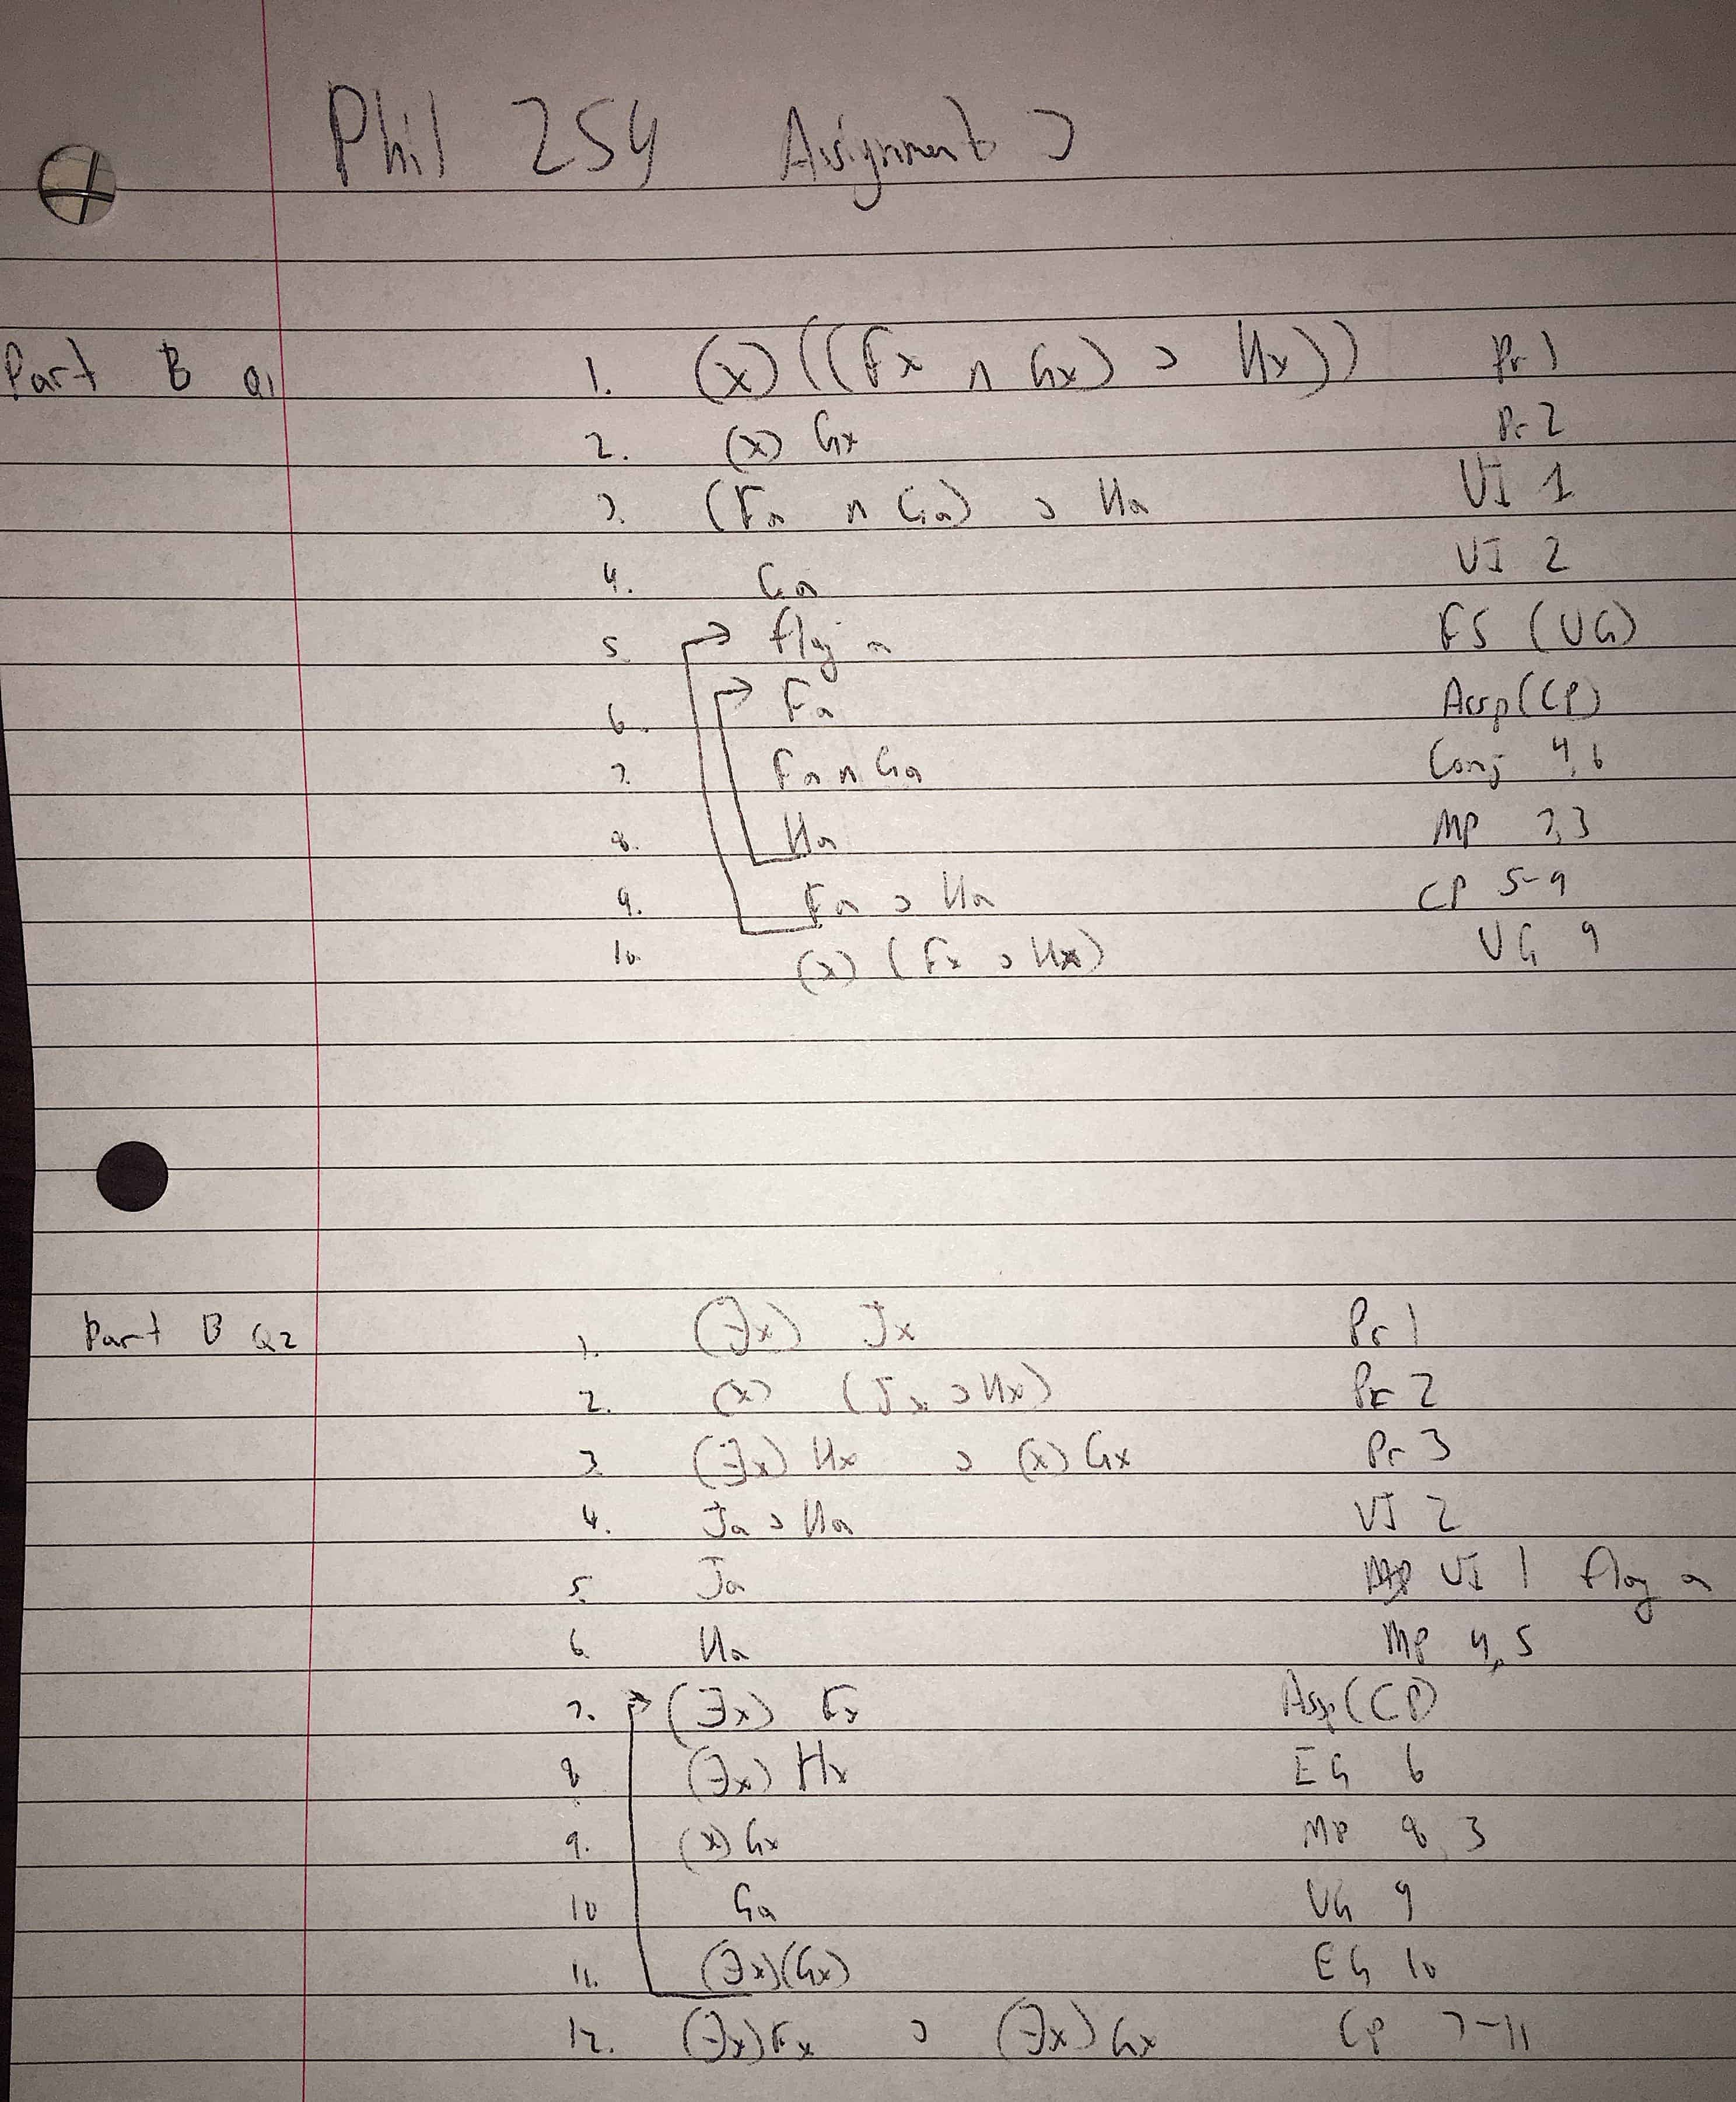 Phil 254 Assignment 3
Part B Q1 1. (x)((Fx ∩ Gx) ⊃ Hx)) Pr 1
2. (x) Gx Pr 2
3. (Fa ∩ Ga) ⊃ Ha UI 1
4. Ga UI 2
5 flag a FS (UG)
6. Fa Assp(CP)
7. Fa ∩ Ga Conj 4,6
8. Ha MP 7,3
9. Fa ⊃ Ha CP 5-9
10 (x) (Fx ⊃ Hx) UG 9
Part B Q2 1. (∃x) Jx Pr 1
2. (x) (Jx ⊃ Hx) Pr 2
3 (∃x) Hx ⊃ (x) Gx Pr 3
4. Ja ⊃ Ha UI 2
5 Ja UI 1 flag a
6 Ha MP 4,5
7. (∃x) Fx Assp(CP)
8 (∃x) Hx EG 6
9. (x) Gx MP 8,3
10 Ga UG 9
11. (∃x)(Gx) EG 10
12. (∃x)Fx ⊃ (∃x) Gx CP 7-11